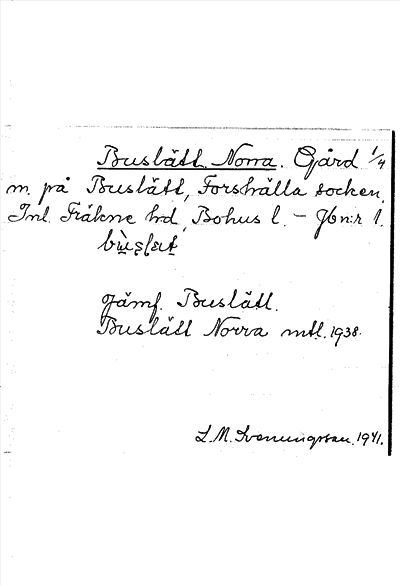 Buslätt Norra. Gård 1/4
m. på Buslätt, Forshälla socken,
Inl. Fräkne hd, Bohus l. – Jb n:r 1.
Jämf. Buslätt.
Buslätt Norra mtl. 1938.
L.M. Svenungsson. 1941.